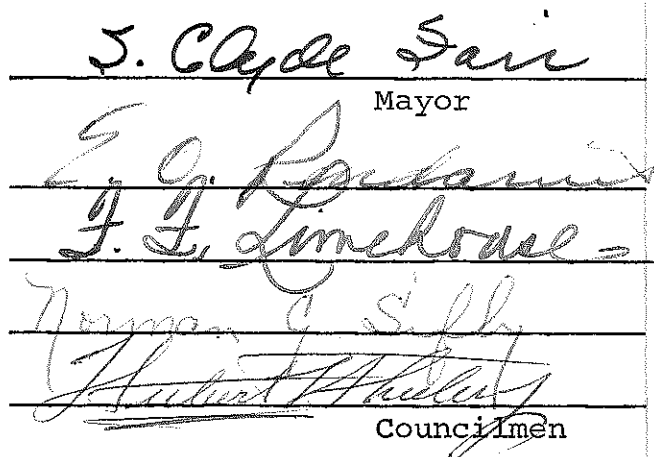 S. Clyde Fair
Mayor
E. O.
F. F. Limehouse
Norman J Sifly
Hubert Wheeler
Councilmen